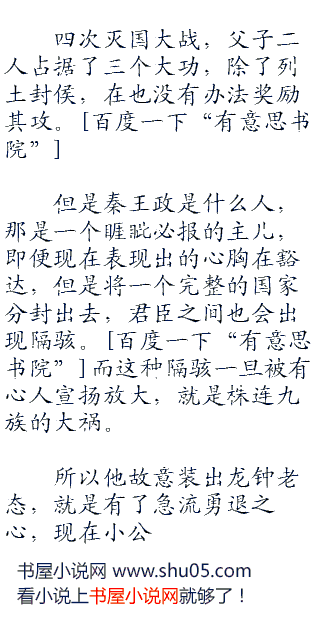 四次灭国大战，父子二
人占据了三个大功，除了列
土封侯，在也没有办法奖励
其攻。[百度一下“有意思书
院”]
但是秦王政是什么人，
那是一个睚眦必报的主儿，
即便现在表现出的心胸在豁
达，但是将一个完整的国家
分封出去，君臣之间也会出
现隔骇。[百度一下“有意思
书院”]而这种隔骇一旦被有
心人宣扬放大，就是株连九
族的大祸。
所以他故意装出龙钟老
态，就是有了急流勇退之
心，现在小公
书屋小说网 www.shu05.com
看小说上书屋小说网就够了！